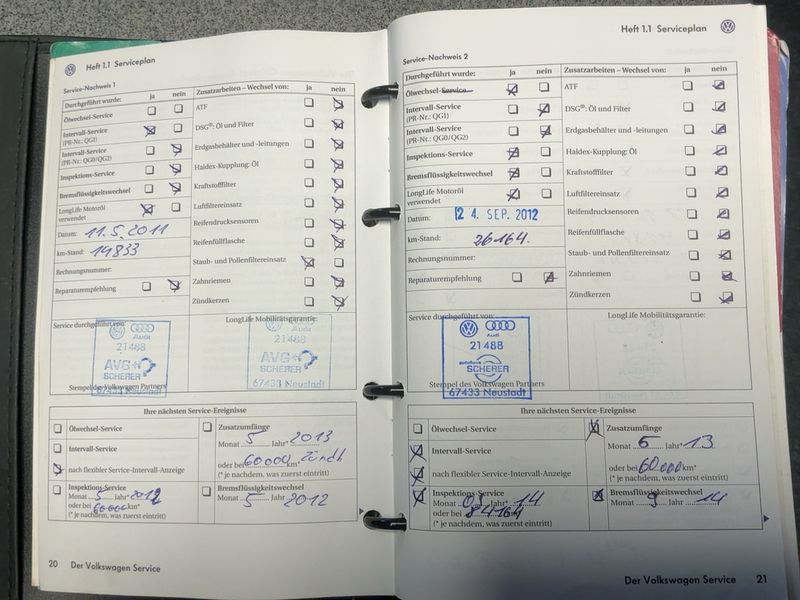 Heft 1.1 Serviceplan
Service-Nachweis 1
Durchgeführt wurde: ja nein
Ölwechsel-Service
Intervall-Service
(PR-Nr.: QG1)
Intervall-Service
(PR-Nr.: QG0/QG2)
Inspektions-Service
Bremsflüssigkeitswechsel
LongLife Motoröl
verwendet
Datum: 11.5.2011
km-Stand: 19833
Rechnungsnummer:
Reparaturempfehlung
Zusatzarbeiten – Wechsel von: ja nein
ATF
DSG®: Öl und Filter
Erdgasbehälter und -leitungen
Haldex-Kupplung: Öl
Kraftstofffilter
Luftfiltereinsatz
Reifendrucksensoren
Reifenfüllflasche
Staub- und Pollenfiltereinsatz
Zahnriemen
Zündkerzen
Service durchgeführt von:
Audi
21488
AVG
SCHERER
67433 Neustadt
Stempel des Volkswagen Partners
LongLife Mobilitätsgarantie:
Audi
21488
AVG
SCHERER
67433 Neustadt
Ihre nächsten Service-Ereignisse
Ölwechsel-Service
Intervall-Service
nach flexibler Service-Intervall-Anzeige
Zusatzumfänge
Monat 5 Jahr* 2013
oder bei 60000 km*
(* je nachdem, was zuerst eintritt)
Inspektions-Service
Monat 5 Jahr* 2012
oder bei 60000 km*
(* je nachdem, was zuerst eintritt)
Bremsflüssigkeitswechsel
Monat 5 Jahr 2012
20 Der Volkswagen Service
Heft 1.1 Serviceplan
Service-Nachweis 2
Durchgeführt wurde: ja nein
Ölwechsel-Service
Intervall-Service
(PR-Nr.: QG1)
Intervall-Service
(PR-Nr.: QG0/QG2)
Inspektions-Service
Bremsflüssigkeitswechsel
LongLife Motoröl
verwendet
Datum: 24. SEP. 2012
km-Stand: 26164.
Rechnungsnummer:
Reparaturempfehlung
Zusatzarbeiten – Wechsel von: ja nein
ATF
DSG®: Öl und Filter
Erdgasbehälter und -leitungen
Haldex-Kupplung: Öl
Kraftstofffilter
Luftfiltereinsatz
Reifendrucksensoren
Reifenfüllflasche
Staub- und Pollenfiltereinsatz
Zahnriemen
Zündkerzen
Service durchgeführt von:
Audi
21488
autohaus
SCHERER
67433 Neustadt
Stempel des Volkswagen Partners
LongLife Mobilitätsgarantie:
Ihre nächsten Service-Ereignisse
Ölwechsel-Service
Intervall-Service
nach flexibler Service-Intervall-Anzeige
Zusatzumfänge
Monat 5 Jahr* 13
oder bei 60000 km*
(* je nachdem, was zuerst eintritt)
Inspektions-Service
Monat 09 Jahr* 14
oder bei 84164 km*
(* je nachdem, was zuerst eintritt)
Bremsflüssigkeitswechsel
Monat 9 Jahr 14
Der Volkswagen Service 21